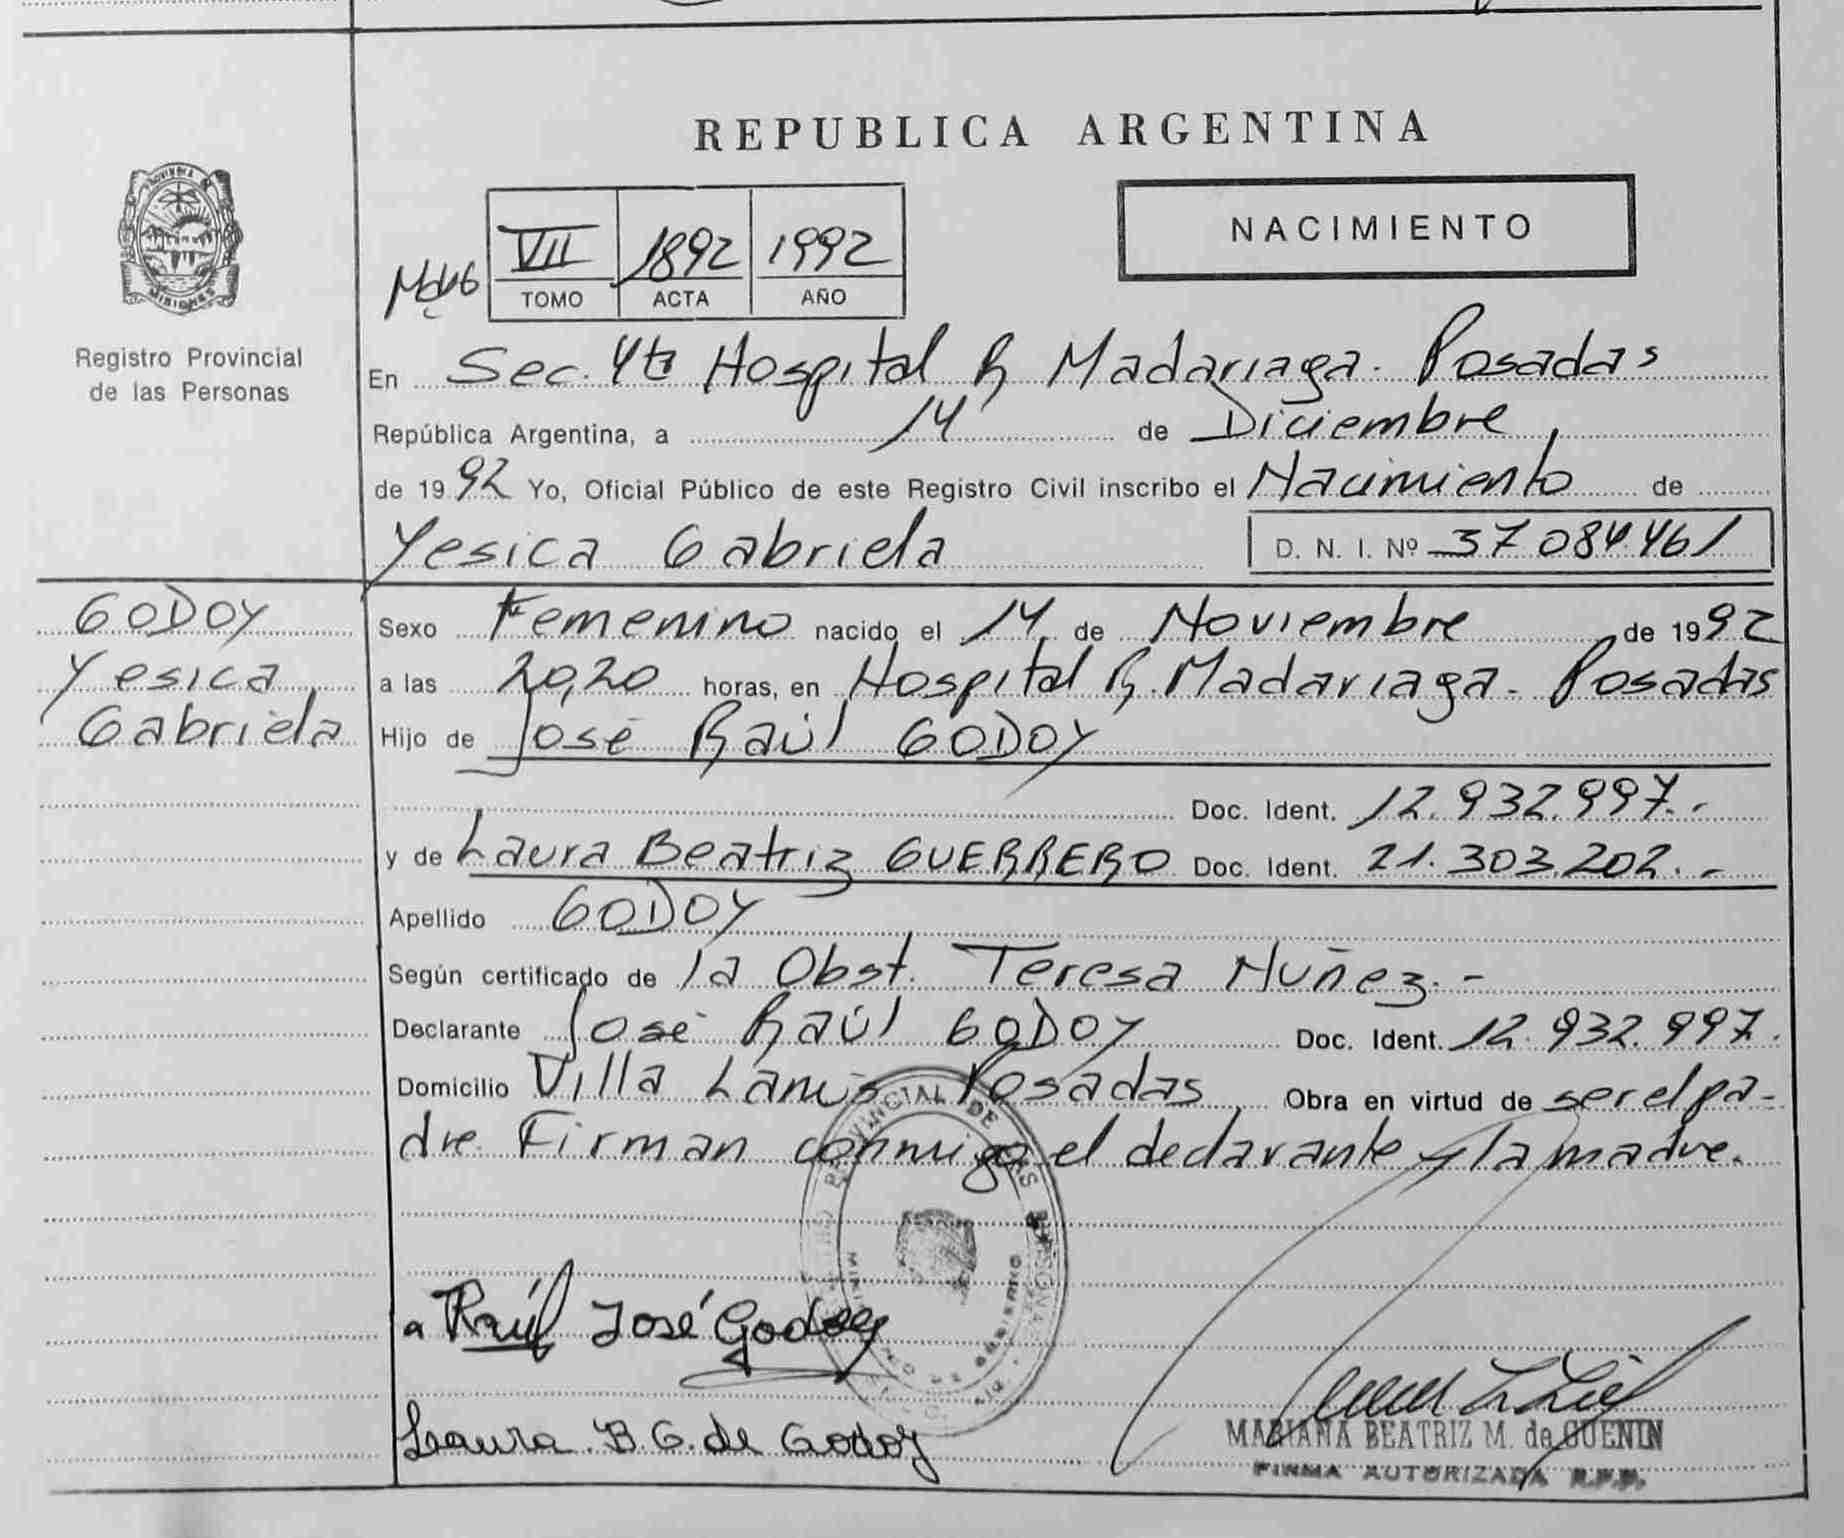 REPUBLICA ARGENTINA
NACIMIENTO
VII 1892 1992
TOMO ACTA AÑO
PROVINCIA DE
MISIONES
Registro Provincial
de las Personas
En Sec. 4ta Hospital R Madariaga. Posadas
República Argentina, a 14 de Diciembre
de 1992 Yo, Oficial Público de este Registro Civil inscribo el Nacimiento de
Yesica Gabriela D. N. I. Nº 37 084.461
GODOY
Yesica
Gabriela
Sexo Femenino nacido el 14 de Noviembre de 1992
a las 20,20 horas, en Hospital R. Madariaga. Posadas
Hijo de José Raúl GODOY
Doc. Ident. 12.932.997.-
y de Laura Beatriz GUERRERO Doc. Ident. 21.303.202.-
Apellido GODOY
Según certificado de la Obst. Teresa Nuñez.-
Declarante José Raúl GODOY Doc. Ident. 12.932.997.
Domicilio Villa Lanús Posadas Obra en virtud de ser el pa-
dre. Firman conmigo el declarante y la madre.
PROVINCIAL DE LAS PERSONAS
a Raúl José Godoy
Laura B G. de Godoy
MARIANA BEATRIZ M. de GUENIN
FIRMA AUTORIZADA R.P.P.